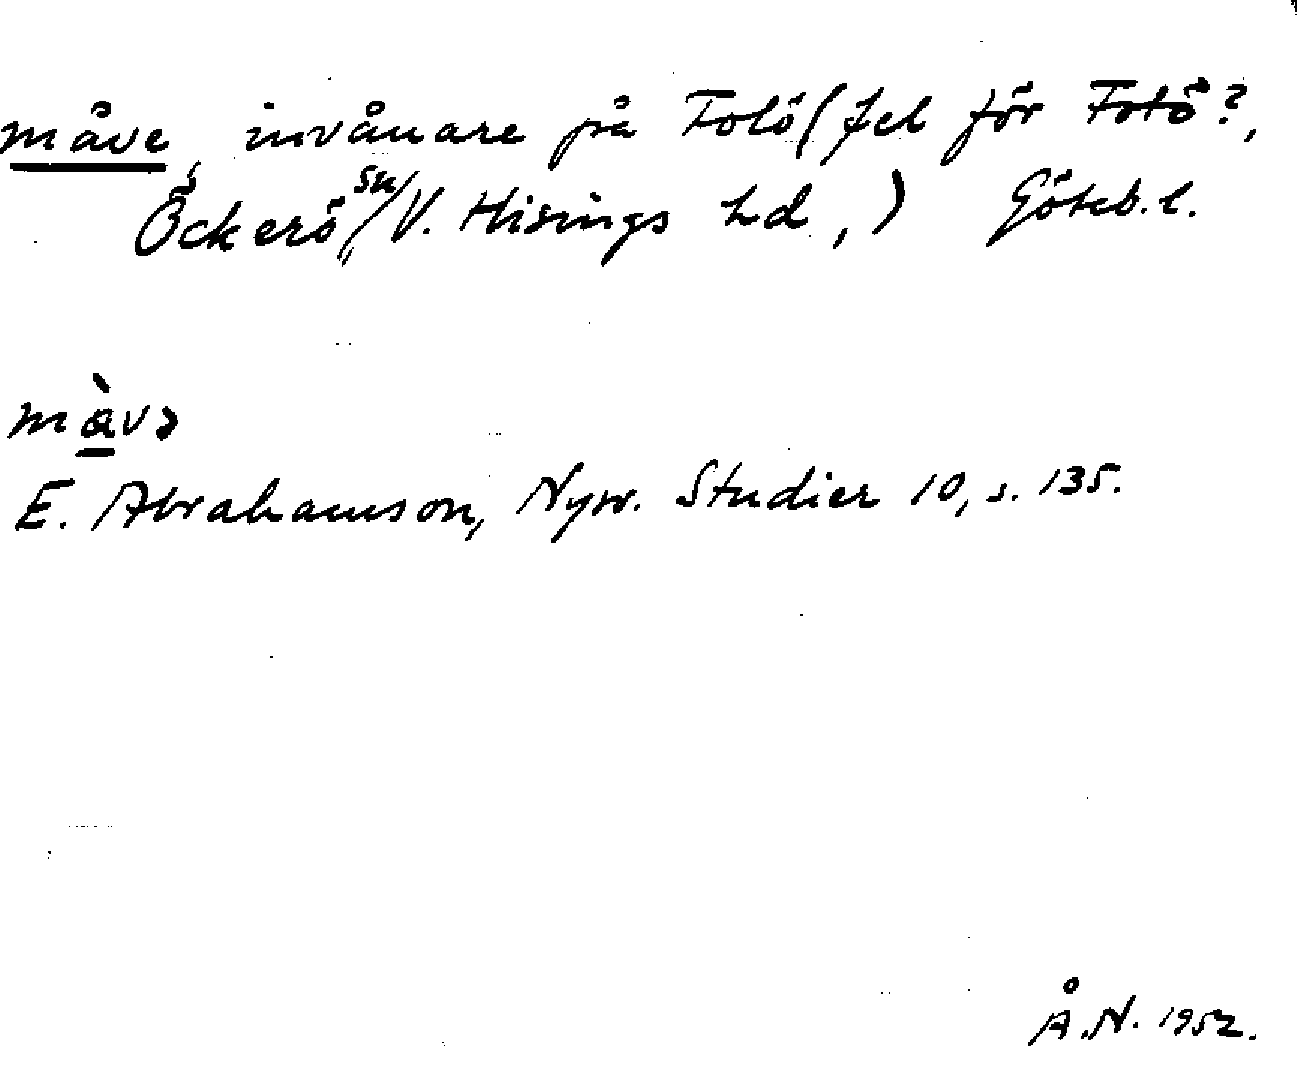 måve, invånare på Folö (fel för Fotö?,
Öckerö sn, V. Hisings hd,) Göteb. l.
màvə
E. Abrahamson, Nysv. Studier 10, s. 135.
Å.N. 1952.